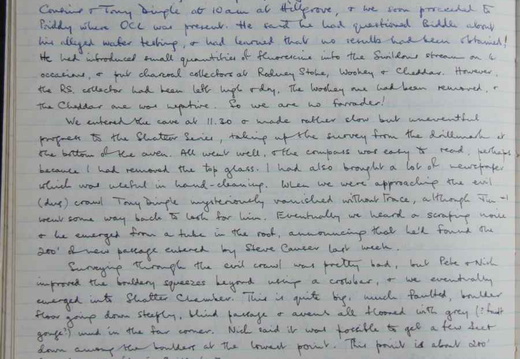 Cousins & Tony Dingle at 10am at Hillgrove, & we soon proceeded to
Priddy where OCL was present. He said he had questioned Biddle about
his alleged water testing, & had learned that no results had been obtained!
He had introduced small quantities of fluorescine into the Swildons stream on 6
occasions, & put charcoal collectors at Rodney Stoke, Wookey & Cheddar. However,
the RS collector had been left high & dry, the Wookey one had been removed, &
the Cheddar one was negative. So we are no farrader!
We entered the cave at 11.30 & made rather slow but uneventful
progress to the Shatter Series, taking up the survey from the drillmark at
the bottom of the aven. All went well, & the compass was easy to read, perhaps
because I had removed the top glass. I had also brought a lot of newspaper
which was useful in hand-cleaning. When we were approaching the evil
(duck) crawl Tony Dingle mysteriously vanished without trace, although Jim
went some way back to look for him. Eventually we heard a scraping noise
& he emerged from a tube in the roof, announcing that he'd found the
200' of new passage entered by Steve last week.
Surveying through the evil crawl was pretty bad, but Pete & Nick
improved the bouldery squeezes beyond using a crowbar, & we eventually
emerged into Shatter Chamber. This is quite big, much faulted, boulder
floor going down steeply, blind passage & avens all floored with grey (? fault
gouge?) mud in the far corner. Nick said it was possible to get a few feet
down among the boulders at the lowest point. This point is about 200'